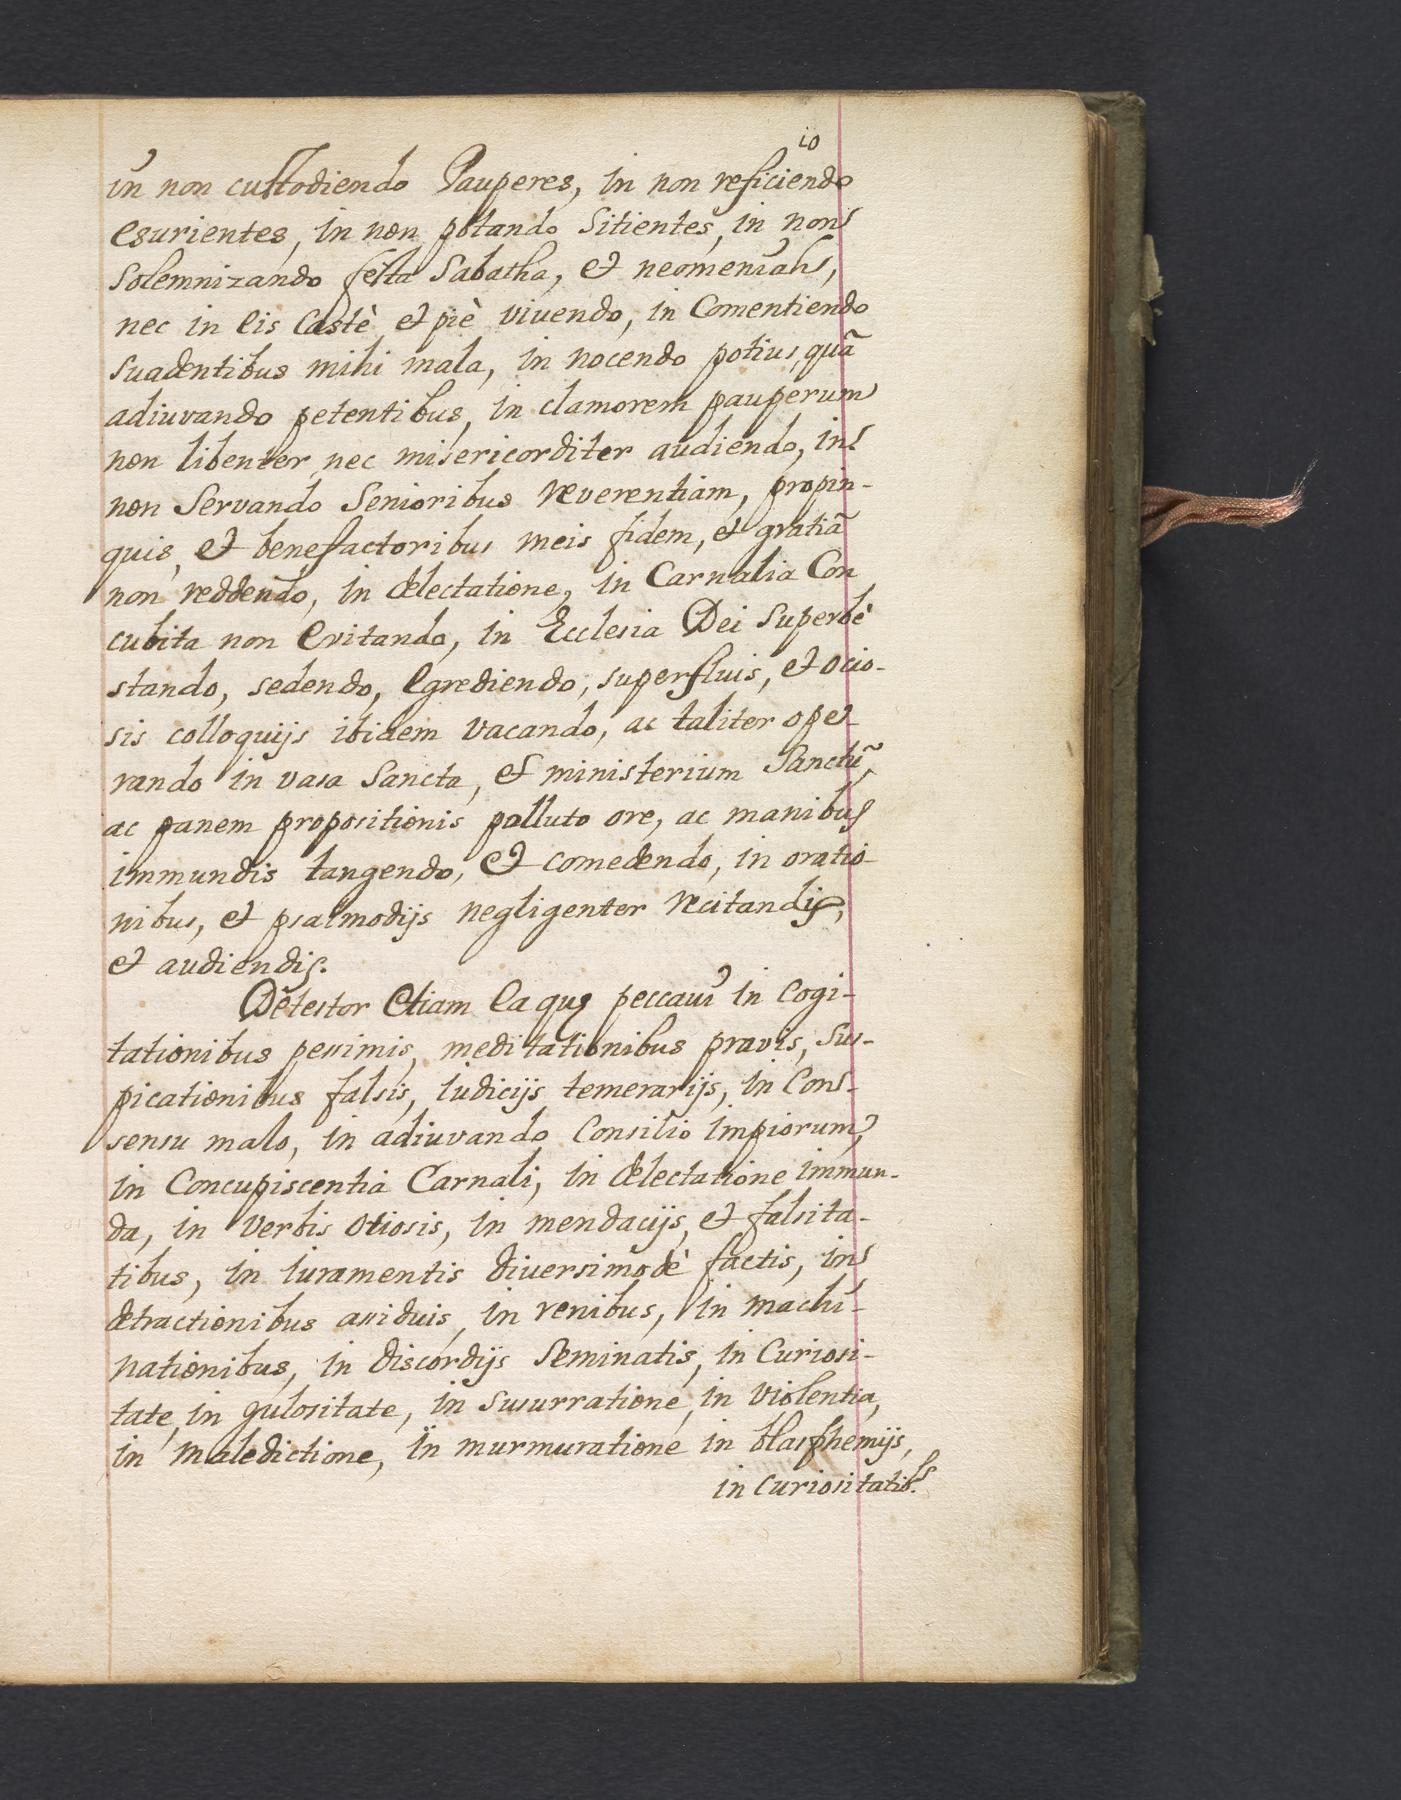 10
in non custodiendo Pauperes, in non reficiendo
esurientes, in non potando Sitientes, in non
Solemnizando festa Sabatha, et neomenias,
nec in eis Castè et piè viuendo, in Comentiendo
suadentibus mihi mala, in nocendo potius, quã
adiuvando petentibus, in clamorem pauperum
non libenter nec misericorditer audiendo, in
non Servando Senioribus reverentiam, propin-
quis, et benefactoribus meis fidem, et gratiã
non reddendo, in delectatione, in Carnalia Con
cubita non Evitando, in Ecclesia Dei Superbè
stando, sedendo, Egrediendo, superfluis, et ocio-
sis colloquijs ibidem vacando, ac taliter ope-
rando in vasa Sancta, et ministerium Sanctũ,
ac panem propositionis polluto ore, ac manibus
immundis tangendo, et comedendo, in oratio-
nibus, et psalmodijs negligenter recitandis,
et audiendis.
Detestor Etiam Ea quę peccaui in Cogi-
tationibus pessimis, meditationibus pravis, sus-
picationibus falsis, Iudicijs temerarijs, in Cons-
sensu malo, in adiuvando Consilio Impiorum,
in Concupiscentia Carnali, in delectatione immun-
da, in Verbis Otiosis, in mendacijs, et falsita-
tibus, in Iuramentis diversimodè factis, in
detractionibus assiduis, in renibus, in machi-
nationibus, in discordijs Seminatis, in Curiosi-
tate, in gulositate, in susurratione, in Violentia,
in Maledictione, in murmuratione in blasphemijs,
in curiositatib.s